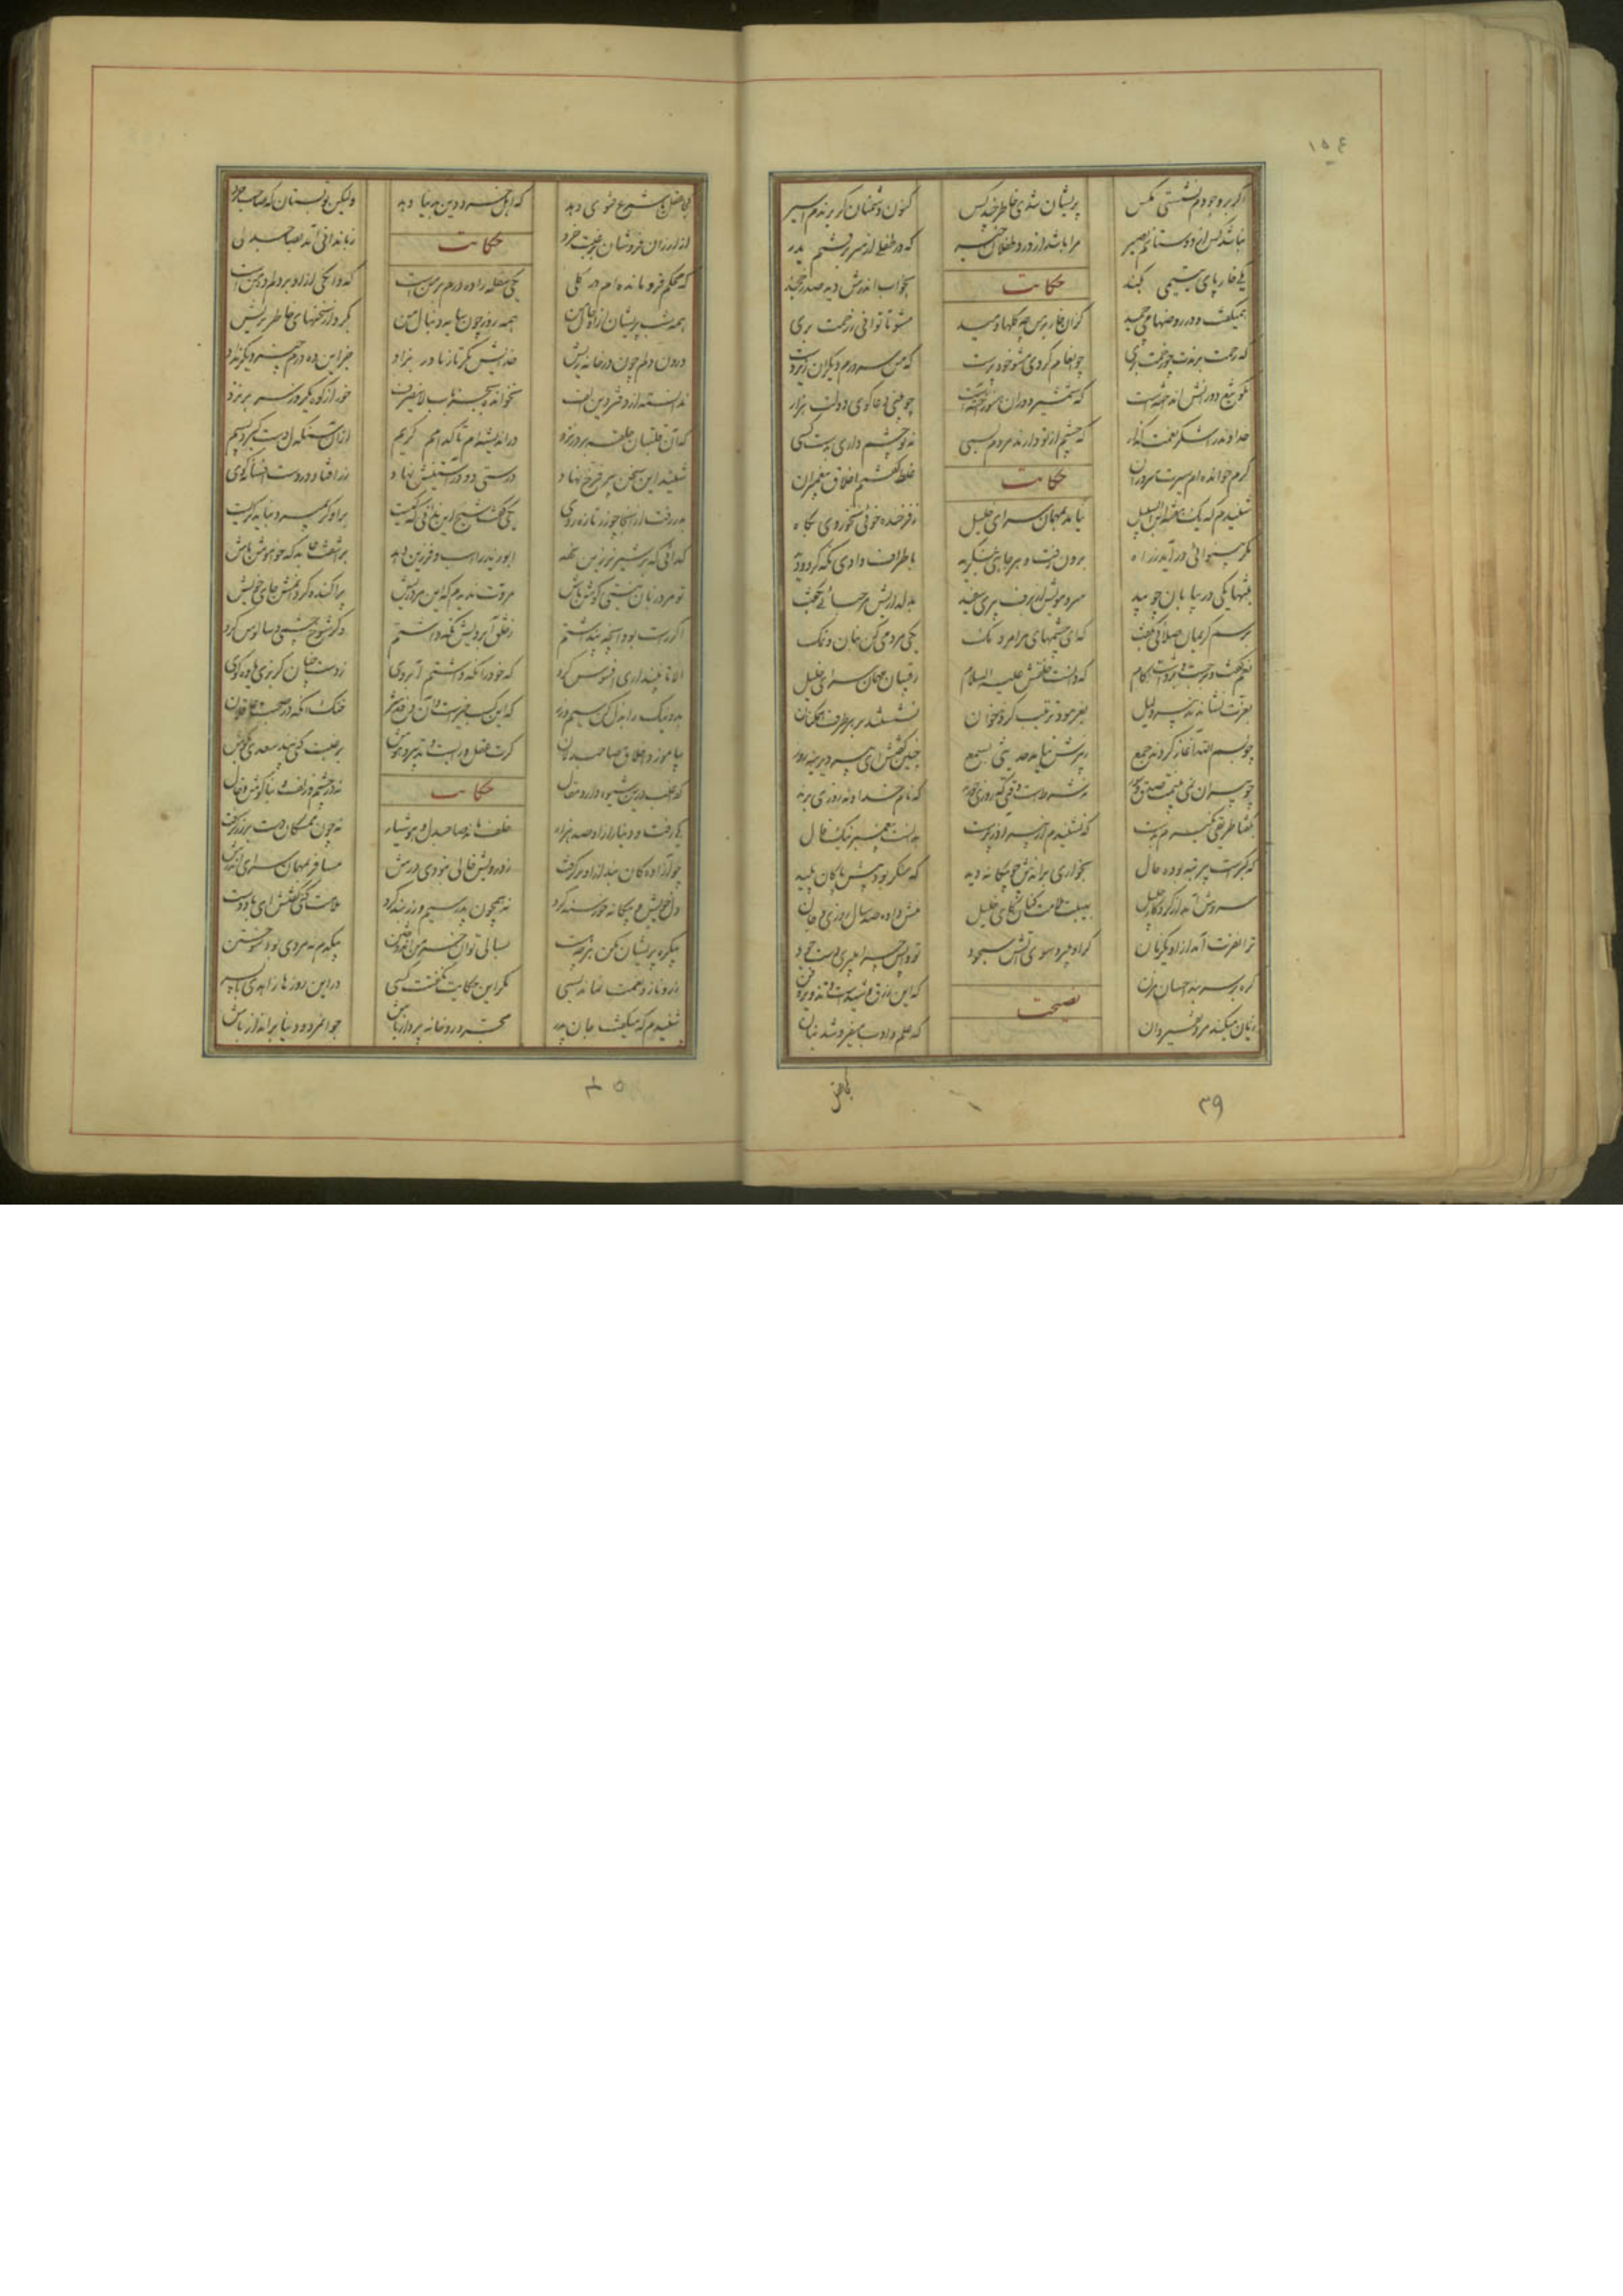 ۱۵۴
اگر بر وجودم نشستی مگس پریشان شدی خاطر چند کس کنون دشمنان گر برندم اسیر
نباشد کس از دوستانم نصیر مرا باشد از درد طفلان خبر که در طفلی از سر برفتم پدر
یکی خار پای یتیمی بکند حکایت بخواب اندرش دید صدر خجند
همیگفت و در روضها میچمید کزان خار بر من چه گلها دمید مشو تا توانی ز رحمت بری
که رحمت برندت چو رحمت بری چو انعام کردی مشو خود پرست که من سرورم دیگران زیردست
مگو تیغ دورانش انداختست که شمشیر دوران هنوز آختست چو بینی دعاگوی دولت هزار
خداوند را شکر نعمت گذار که چشم از تو دارند مردم بسی نه تو چشم داری بدست کسی
کرم خوانده ام سیرت سروران حکایت غلط گفتم اخلاق پیغمبران
شنیدم که یک هفته ابن السبیل نیامد بمهمان سرای خلیل ز فرخنده خوئی نخوردی بگاه
مگر بینوائی درآید ز راه برون رفت و هر جانبی بنگرید باطراف وادی نگه کرد و دید
بتنها یکی در بیابان چو بید سر و مویش از برف پیری سفید بدلداریش مرحبائی بگفت
برسم کریمان صلائی بگفت که ای چشمهای مرا مردمک یکی مردمی کن بنان و نمک
نعم گفت و برجست و برداشت گام که دانست خلقش علیه السلام رقیبان مهمان سرای خلیل
بعزت نشاندند پیر ذلیل بفرمود و ترتیب کردند خوان نشستند بر هر طرف همگنان
چو بسم الله آغاز کردند جمع ز پیرش نیامد حدیثی بسمع چنین گفتش ای پیر دیرینه روز
چو پیران نمی بینمت صدق و سوز نه شرطست وقتی که روزی خوری که نام خداوند روزی بری
بگفتا طریقی نگیرم بدست که نشنیدم از پیر آذر پرست بدانست پیغمبر نیک فال
که گبرست پیر تبه بوده حال بخواری براندش چو بیگانه دید که منکر بود پیش پاکان پلید
سروش آمد از کردگار جلیل بهیبت ملامت کنان کای خلیل منش داده صد سال روزی و جان
ترا نفرت آمد ازو یکزمان گر او میبرد سوی آتش سجود تو واپس چرا میبری دست جود
گره بر سر بند احسان مزن که این زرق و شیدست و آن
نصیحت
زیان میکند مرد تفسیردان که علم و ادب میفروشد بنان
۳۹
کجا عقل با شرع فتوی دهد که اهل خرد دین بدنیا دهد ولیکن تو بستان که صاحب خرد
از ارزان فروشان برغبت خرد حکایت زباندانی آمد بصاحبدلی
که محکم فرو مانده ام در گلی یکی سفله را ده درم بر منست که دانگی ازو بر دلم ده منست
همه شب پریشان ازو حال من همه روز چون سایه دنبال من بکرد از سخنهای خاطر پریش
درون دلم چون در خانه ریش خدایش مگر تا ز مادر بزاد جز این ده درم چیز دیگر نداد
ندانسته از دفتر دین الف نخوانده بجز باب لاینصرف خور از کوه یکروز سر بر نزد
که آن قلتبان حلقه بر در نزد در اندیشه ام تا کدامم کریم ازان سنگدل دست گیرد بسیم
شنید این سخن پیر فرخ نهاد درستی دو در آستینش نهاد زر افتاد در دست افسانه گوی
بدر رفت از آنجا چو زر تازه روی یکی گفت شیخ این ندانی که کیست برو گر بمیرد نباید گریست
گدائی که بر شیر نر زین نهد ابو زید را اسب و فرزین نهد برآشفت عابد که خاموش باش
تو مرد زبان نیستی گوش باش مروت ندیدم که این مرد ریش پراکنده گرداندش جای خویش
اگر راست بود آنچه پنداشتم ز خلق آبرویش نگه داشتم وگر شوخ چشمی و سالوس کرد
الا تا نپنداری افسوس کرد که خود را نگه داشتم آبروی ز دست چنان گربزی یاوه گوی
بد و نیک را بذل کن سیم و زر که این کسب خیرست و آن دفع شر خنک آنکه در صحبت عاقلان
بیاموزد اخلاق صاحبدلان گرت عقل و رایست و تدبیر و هوش برغبت کنی پند سعدی بگوش
که اغلب درین شیوه دارد مقال حکایت نه در چشم و زلف و بناگوش و خال
یکی رفت و دینار ازو صد هزار خلف ماند صاحبدل و هوشیار نه چون ممسکان دست بر زر گرفت
چو آزادگان بند ازو برگرفت ز درویش خالی نبودی درش مسافر بمهمان سرای اندرش
دل خویش و بیگانه خورسند کرد نه همچون پدر سیم و زر بند کرد ملامت کنی گفتش ای باد دست
بیکره پریشان مکن هر چه هست بسالی توان خرمن اندوختن بیکدم نه مردی بود سوختن
درو ناز و نعمت نماند بسی مگر این حکایت نگفتت کسی در این روزها زاهدی با پسر
شنیدم که میگفت جان پدر مجرد رو خانه پرداز باش جوانمرد و دنیا برانداز باش